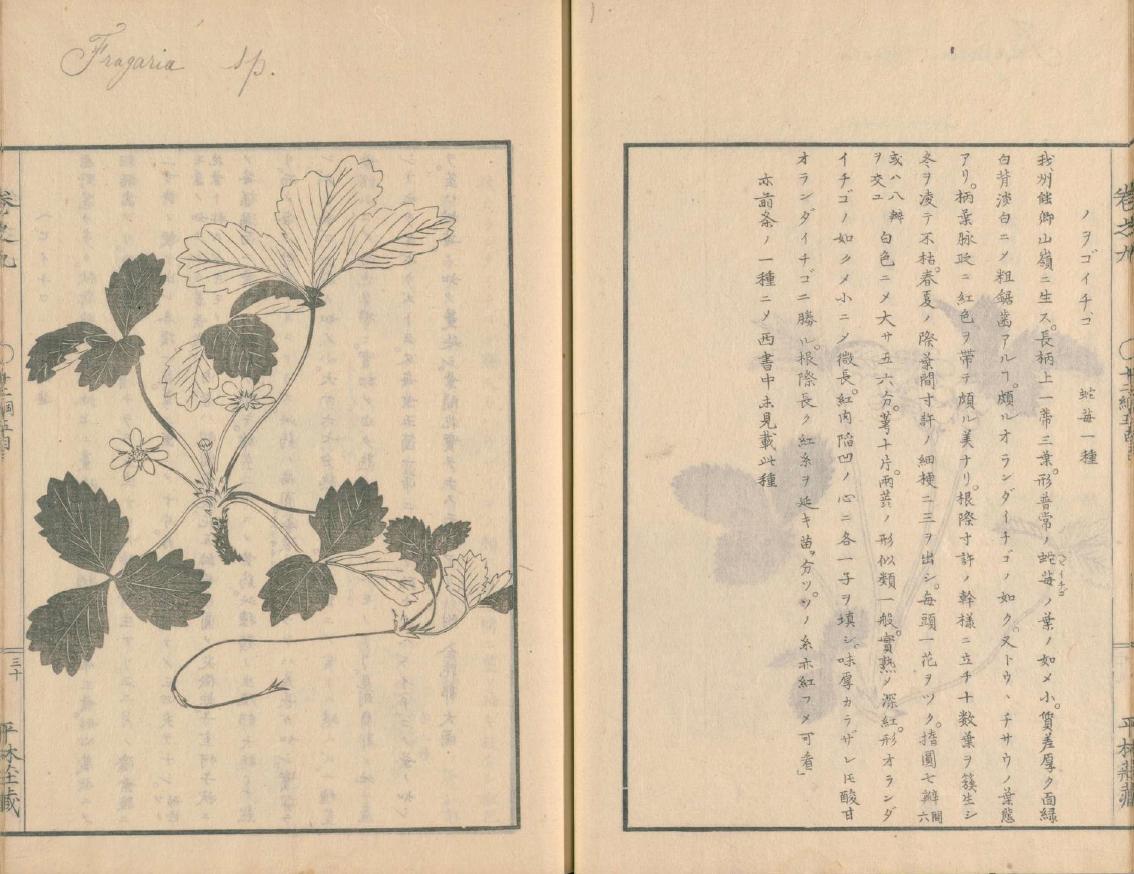 ノヲゴイチゴ 蛇苺一種
我州蝕卿山嶺ニ生ス。長柄上一蔕三葉。形普常ノ蛇苺ノ葉ノ如メ小。質差厚ク面緑
ヘイチゴ
白背淡白ニメ粗鋸歯アルヿ。頗ルオランダイチゴノ如ク。又トウ、チサウノ葉態
アリ。柄葉脉アニ紅色ヲ帯テ頗ル美ナリ。根際寸許ノ幹様ニ立チ十数葉ヲ簇生シ
冬ヲ凌テ不枯。春夏ノ際葉間寸許ノ細梗ニ三ヲ出シ。毎頭一花ヲツク。楕圓七瓣間六
或ハ八瓣ヲ交ユ 白色ニメ大サ五六分。萼十片。兩蕋ノ形似類一般。實熟メ深紅。形オランダ
イチゴノ如クメ小ニメ微長。紅肉陥凹ノ心ニ各一子ヲ填シ。味厚カラザレ𪜈酸甘
オランダイチゴニ勝ル。根際長ク紅糸ヲ延キ苗ヲ分ツ。ソノ糸亦紅フメ可看」
亦前条ノ一種ニメ西書中未見載此種
巻之九
平林荘蔵
Fragaria sp.
巻之九
三十
平林荘蔵